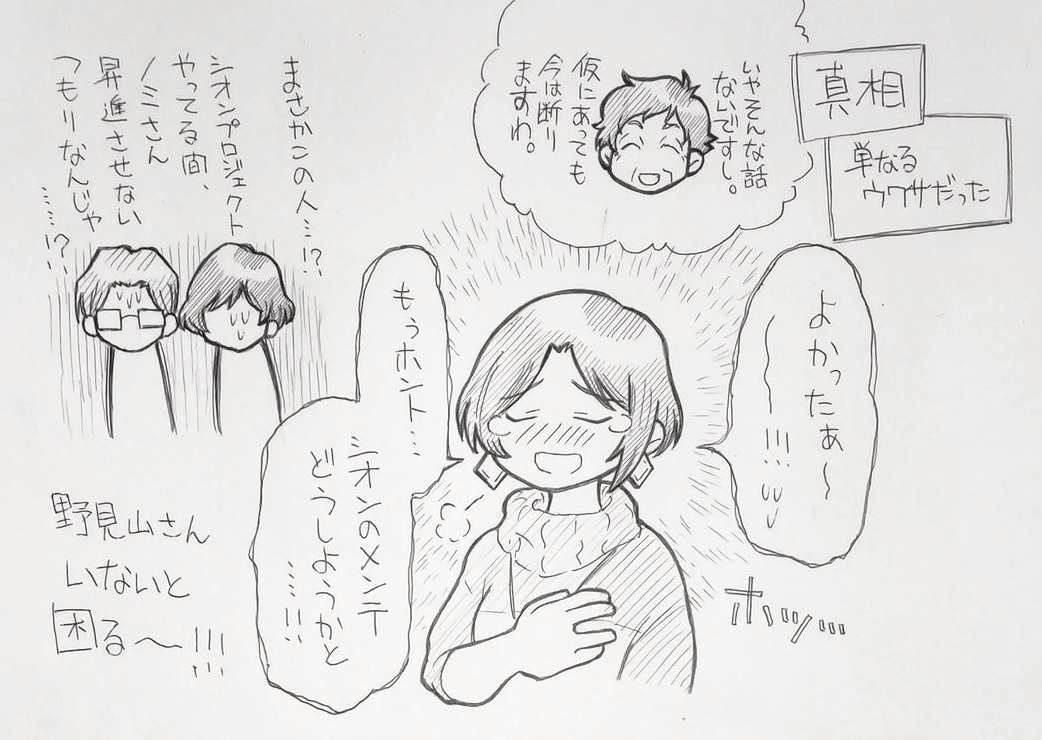 真相
単なる
ウワサだった
いやそんな話
ないですし。
仮にあっても
今は断り
ますわ。
よかったぁ〜
〜〜!!!
もぅホント…
シオンのメンテ
どうしようかと
……!!!
ホッ…
まさかこの人…!?
シオンプロジェクト
やってる間、
ノミさん
昇進させない
つもりなんじゃ
……!?
野見山さん
いないと
困る〜!!!